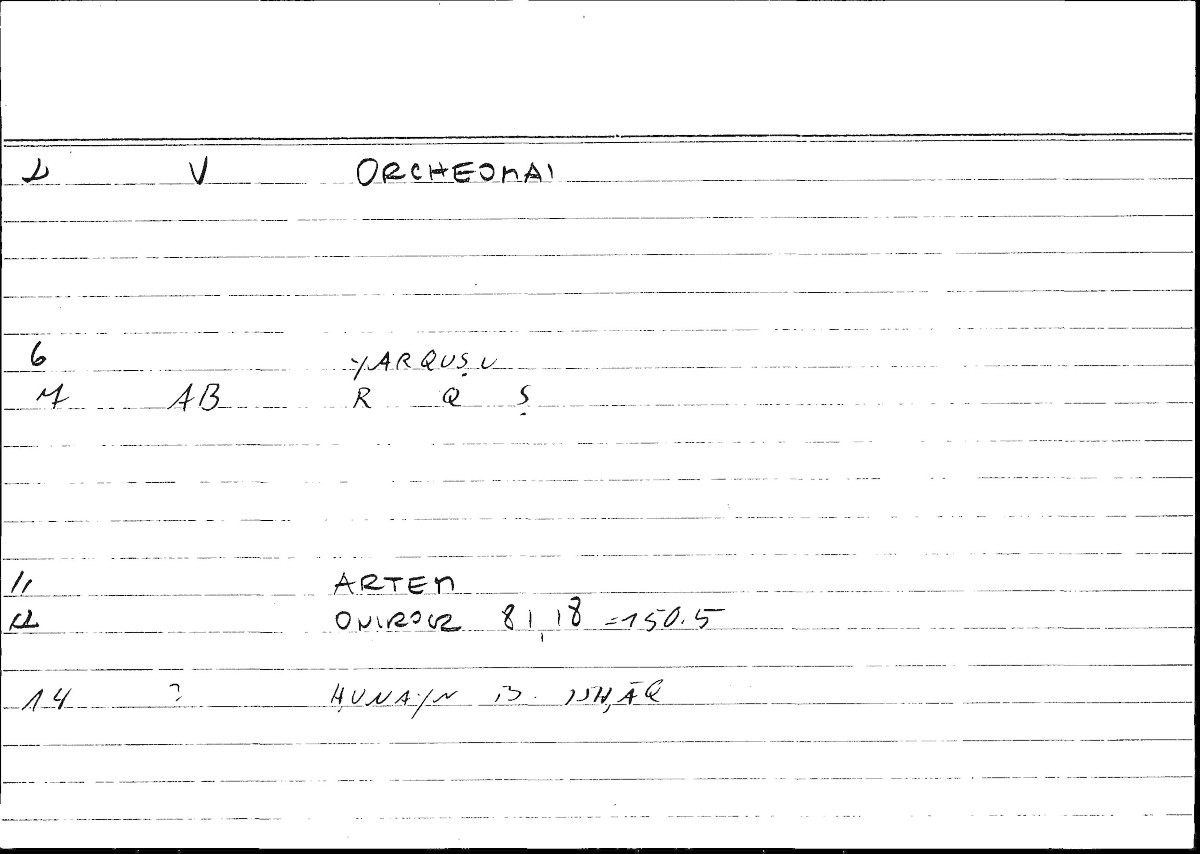 2 V ORCHEOMAI
6 YARQUṢU
7 AB R Q Ṣ
11 ARTEM
12 ONIROCR 81,18 =150.5
14 ? ḤUNAYN B. ISḤĀQ